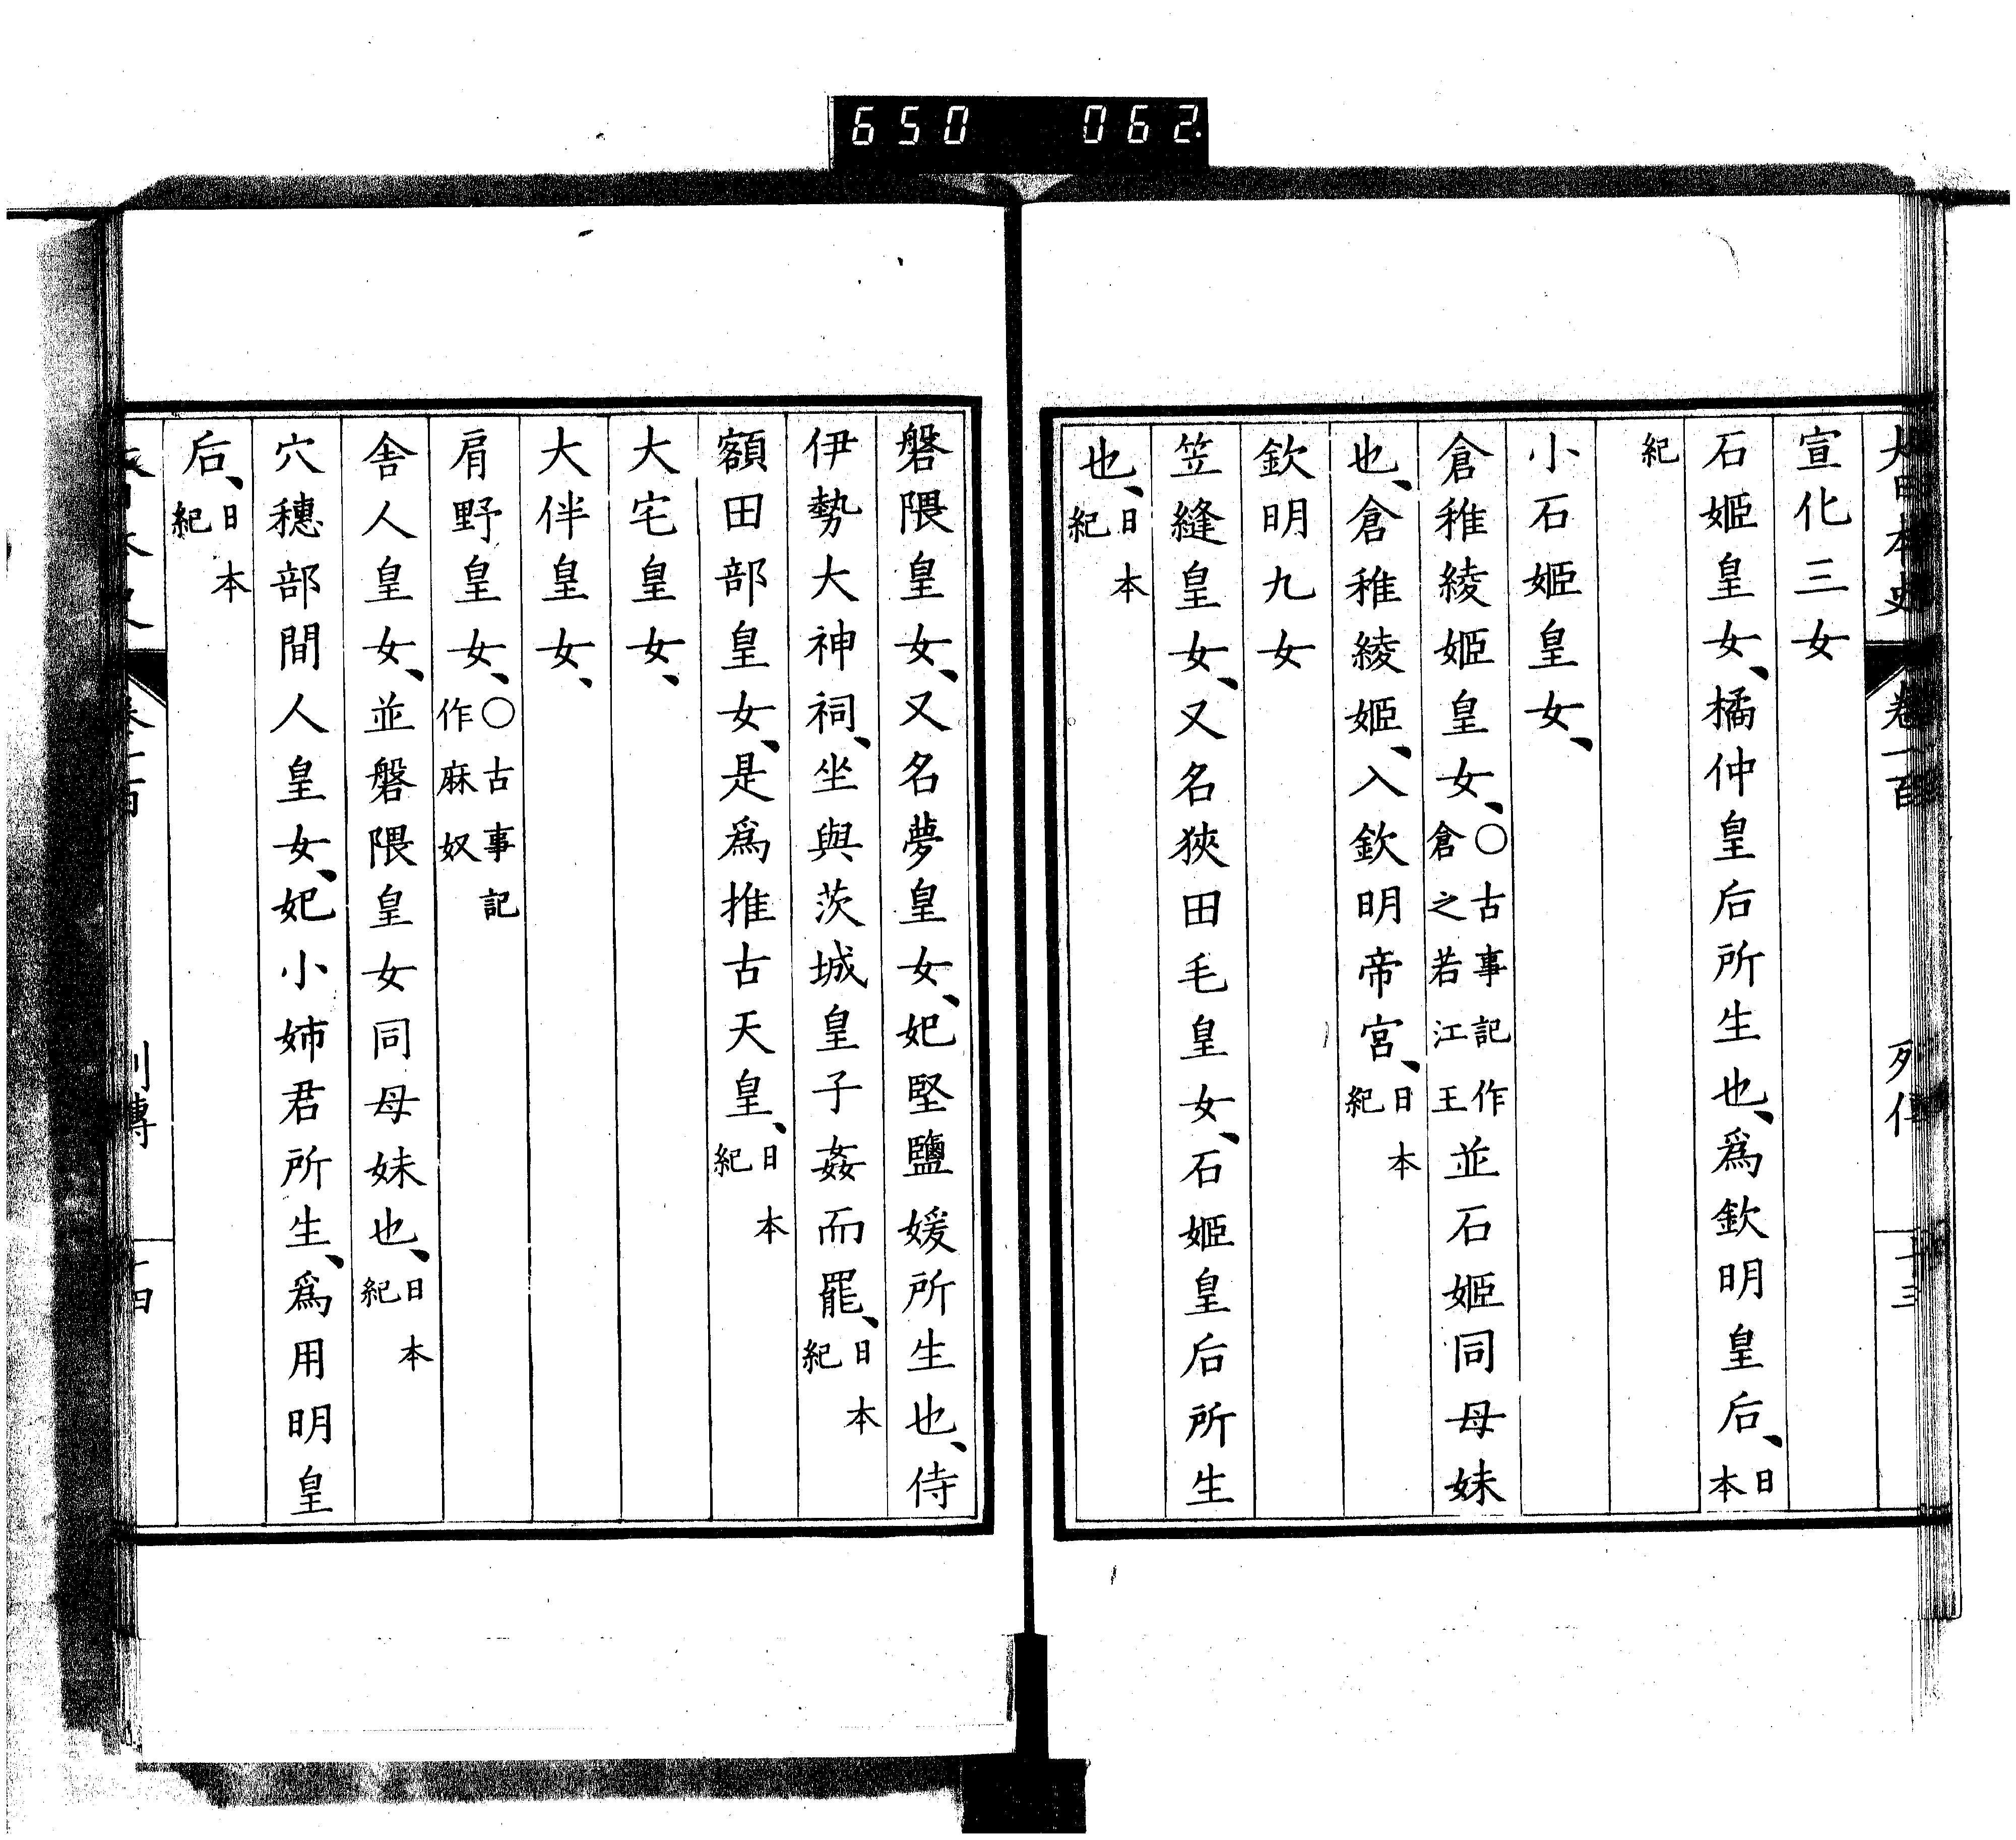 650 062.
大日本史 卷一百 列傳 十三
宣化三女
石姬皇女、橘仲皇后所生也、爲欽明皇后、日本
紀
小石姬皇女、
倉稚綾姬皇女、○古事記作倉之若江王並石姬同母妹
也、倉稚綾姬、入欽明帝宮、日本紀
欽明九女
笠縫皇女、又名狹田毛皇女、石姬皇后所生
也、日本紀
磐隈皇女、又名夢皇女、妃堅鹽媛所生也、侍
伊勢大神祠、坐與茨城皇子姦而罷、日本紀
額田部皇女、是爲推古天皇、日本紀
大宅皇女、
大伴皇女、
肩野皇女、○古事記作麻奴
舍人皇女、並磐隈皇女同母妹也、日本紀
穴穗部間人皇女、妃小姉君所生、爲用明皇
后、日本紀
大日本史 卷一百 列傳 十四